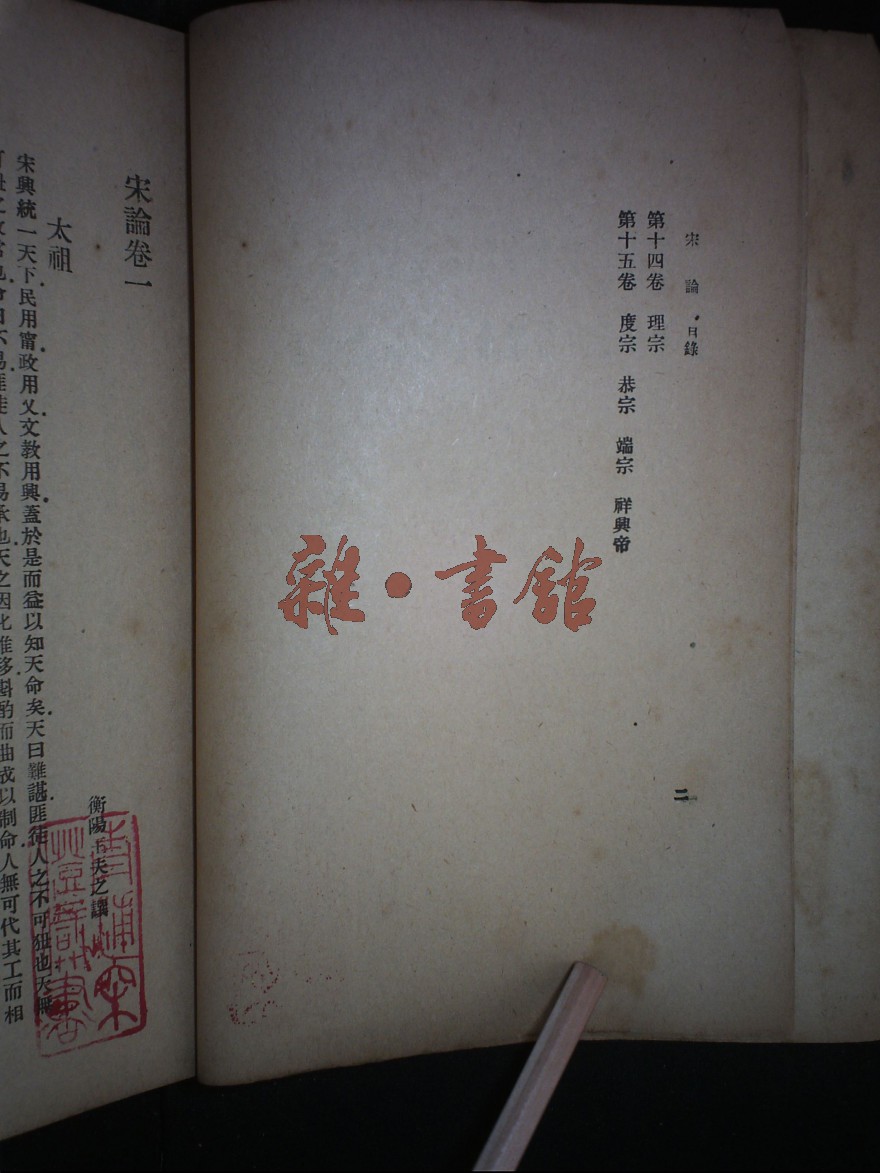 宋論 目錄
第十四卷 理宗
第十五卷 度宗 恭宗 端宗 祥興帝
二
雜·書館
宋論卷一
衡陽王夫之譔
太祖
宋興統一天下民用甯政用乂文教用興蓋於是而益以知天命矣天曰難諶匪徒人之不可狃也天無
之不易承也天之因化推移斟酌而曲成以制命人無可代其工而相